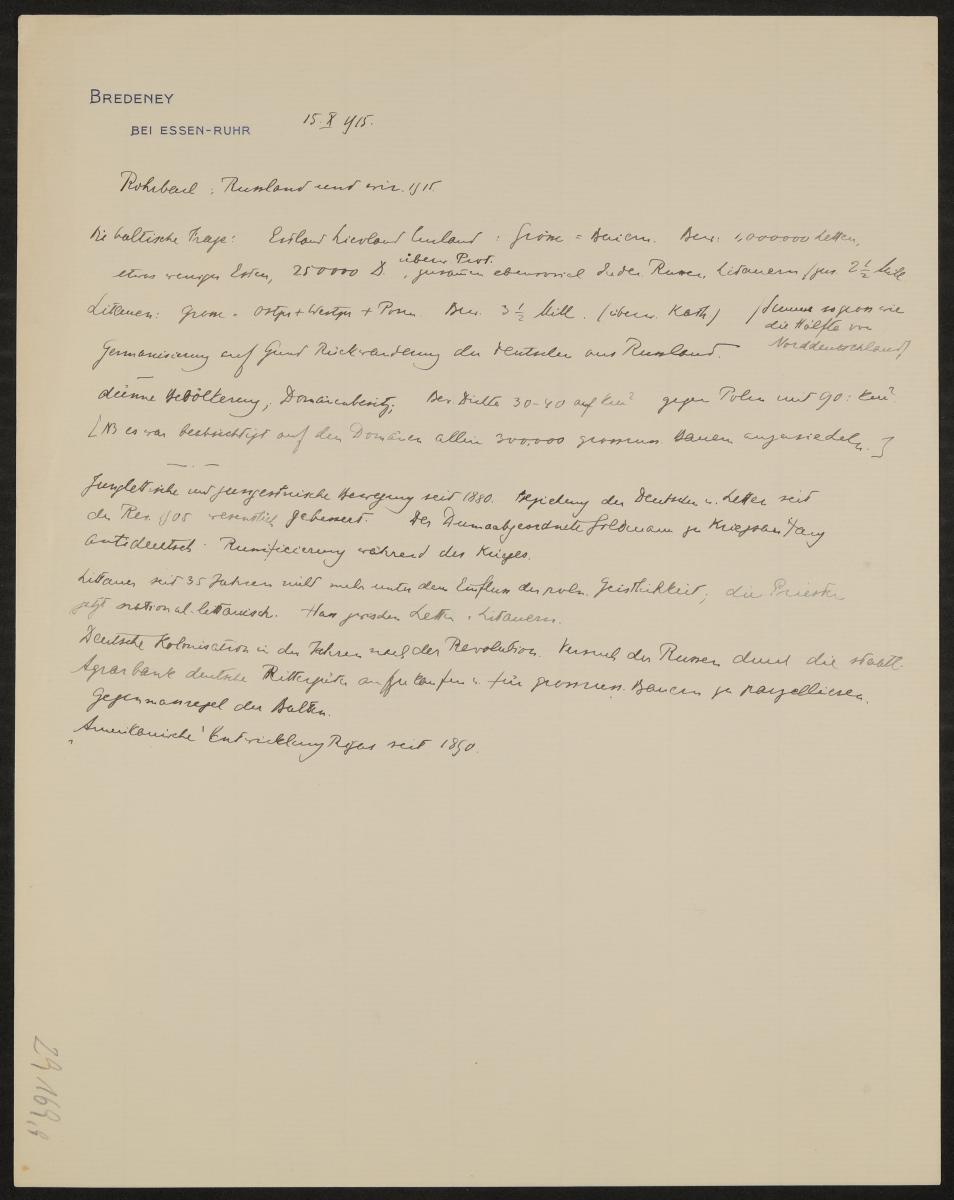 BREDENEY
BEI ESSEN-RUHR
15. X 1915.
Rohrbach: Russland und wir. 1915
Die baltische Frage: Estland Livland Curland: Grösse = Baiern. Bew: 1,000000 Letten,
überw. Prot.
etwas weniger Esten, 250000 D., zusammen ebensoviel Juden Russen, Litauern / zus 2½ Mill
Litauen: Grösse = Ostpr + Westpr + Posen. Bew. 3½ Mill. (überw. Kath) / Summe so gross wie
die Hälfte von
Norddeutschland)
Germanisierung auf Grund Rückwanderung der Deutschen aus Russland.
dünne Bevölkerung, Domänenbesitz, Bev. Dichte 30-40 auf km² gegen Polen mit 90: km²
[NB es war beabsichtigt auf den Domänen allein 300,000 grossruss. Bauern anzusiedeln.]
Junglettische und jungestnische Bewegung seit 1880. Beziehung der Deutschen u. Letten seit
der Rev. 1905 wesentlich gebessert. Der Dumaabgeordnete Goldmann zu Kriegsanfang
antideutsch. Russificierung während des Krieges.
Littauer seit 35 Jahren nicht mehr unter dem Einfluss der poln. Geistlichkeit; die Priester
jetzt national-littauisch. Hass zwischen Letten u. Litauern.
Deutsche Kolonisation in den Jahren nach der Revolution. Versuch der Russen durch die staatl.
Agrarbank deutsche Rittergüter aufzukaufen u. für grossruss. Bauern zu parzellieren.
Gegenmassregel der Balten.
"Amerikanische" Entwicklung Rigas seit 1890.
29,169,8